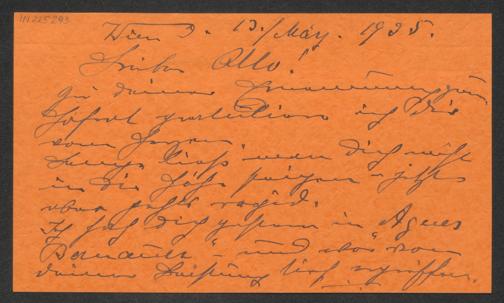 IN 225293
Wien 9. 13./May. 1935.
Lieber Otto!
Zu deiner Ernennung zum
Hofrat gratuliere ich dir
vom Herzen.
Lange ließ man dich nicht
in die Höhe steigen – jetzt
aber gehts rapid.
Ich sah dich gestern in „Agnes
Bernauer" – und war von
deiner Leistung tief ergriffen.